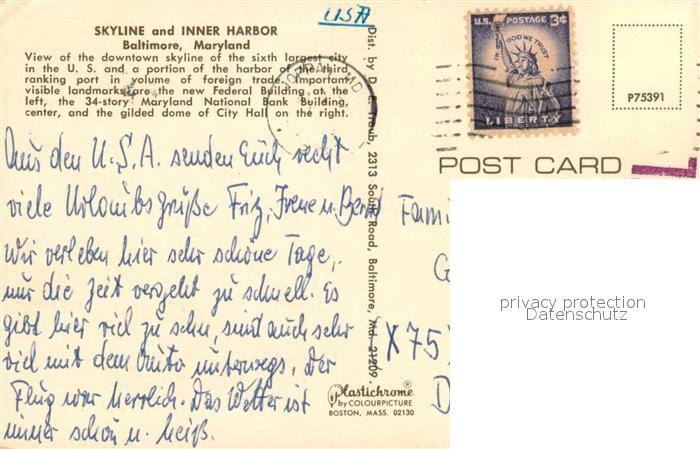 USA
SKYLINE and INNER HARBOR
Baltimore, Maryland
View of the downtown skyline of the sixth largest city
in the U. S. and a portion of the harbor of the third
ranking port in volume of foreign trade. Important
visible landmarks are the new Federal Building at the
left, the 34-story Maryland National Bank Building,
center, and the gilded dome of City Hall on the right.
Aus den U.S.A. senden Euch recht
viele Urlaubsgrüße Fritz, Irene u. Bernd
Wir verleben hier sehr schöne Tage,
nur die Zeit vergeht zu schnell. Es
gibt hier viel zu sehn, sind auch sehr
viel mit dem Auto unterwegs, der
Flug war herrlich. Das Wetter ist
immer schön u. heiß.
Dist. by D. E. Traub, 2313 South Road, Baltimore, Md. 21209
Plastichrome®
by COLOURPICTURE
BOSTON, MASS. 02130
U.S. POSTAGE 3¢
IN GOD WE TRUST
LIBERTY
P75391
POST CARD
Fami
X 75
D
privacy protection
Datenschutz